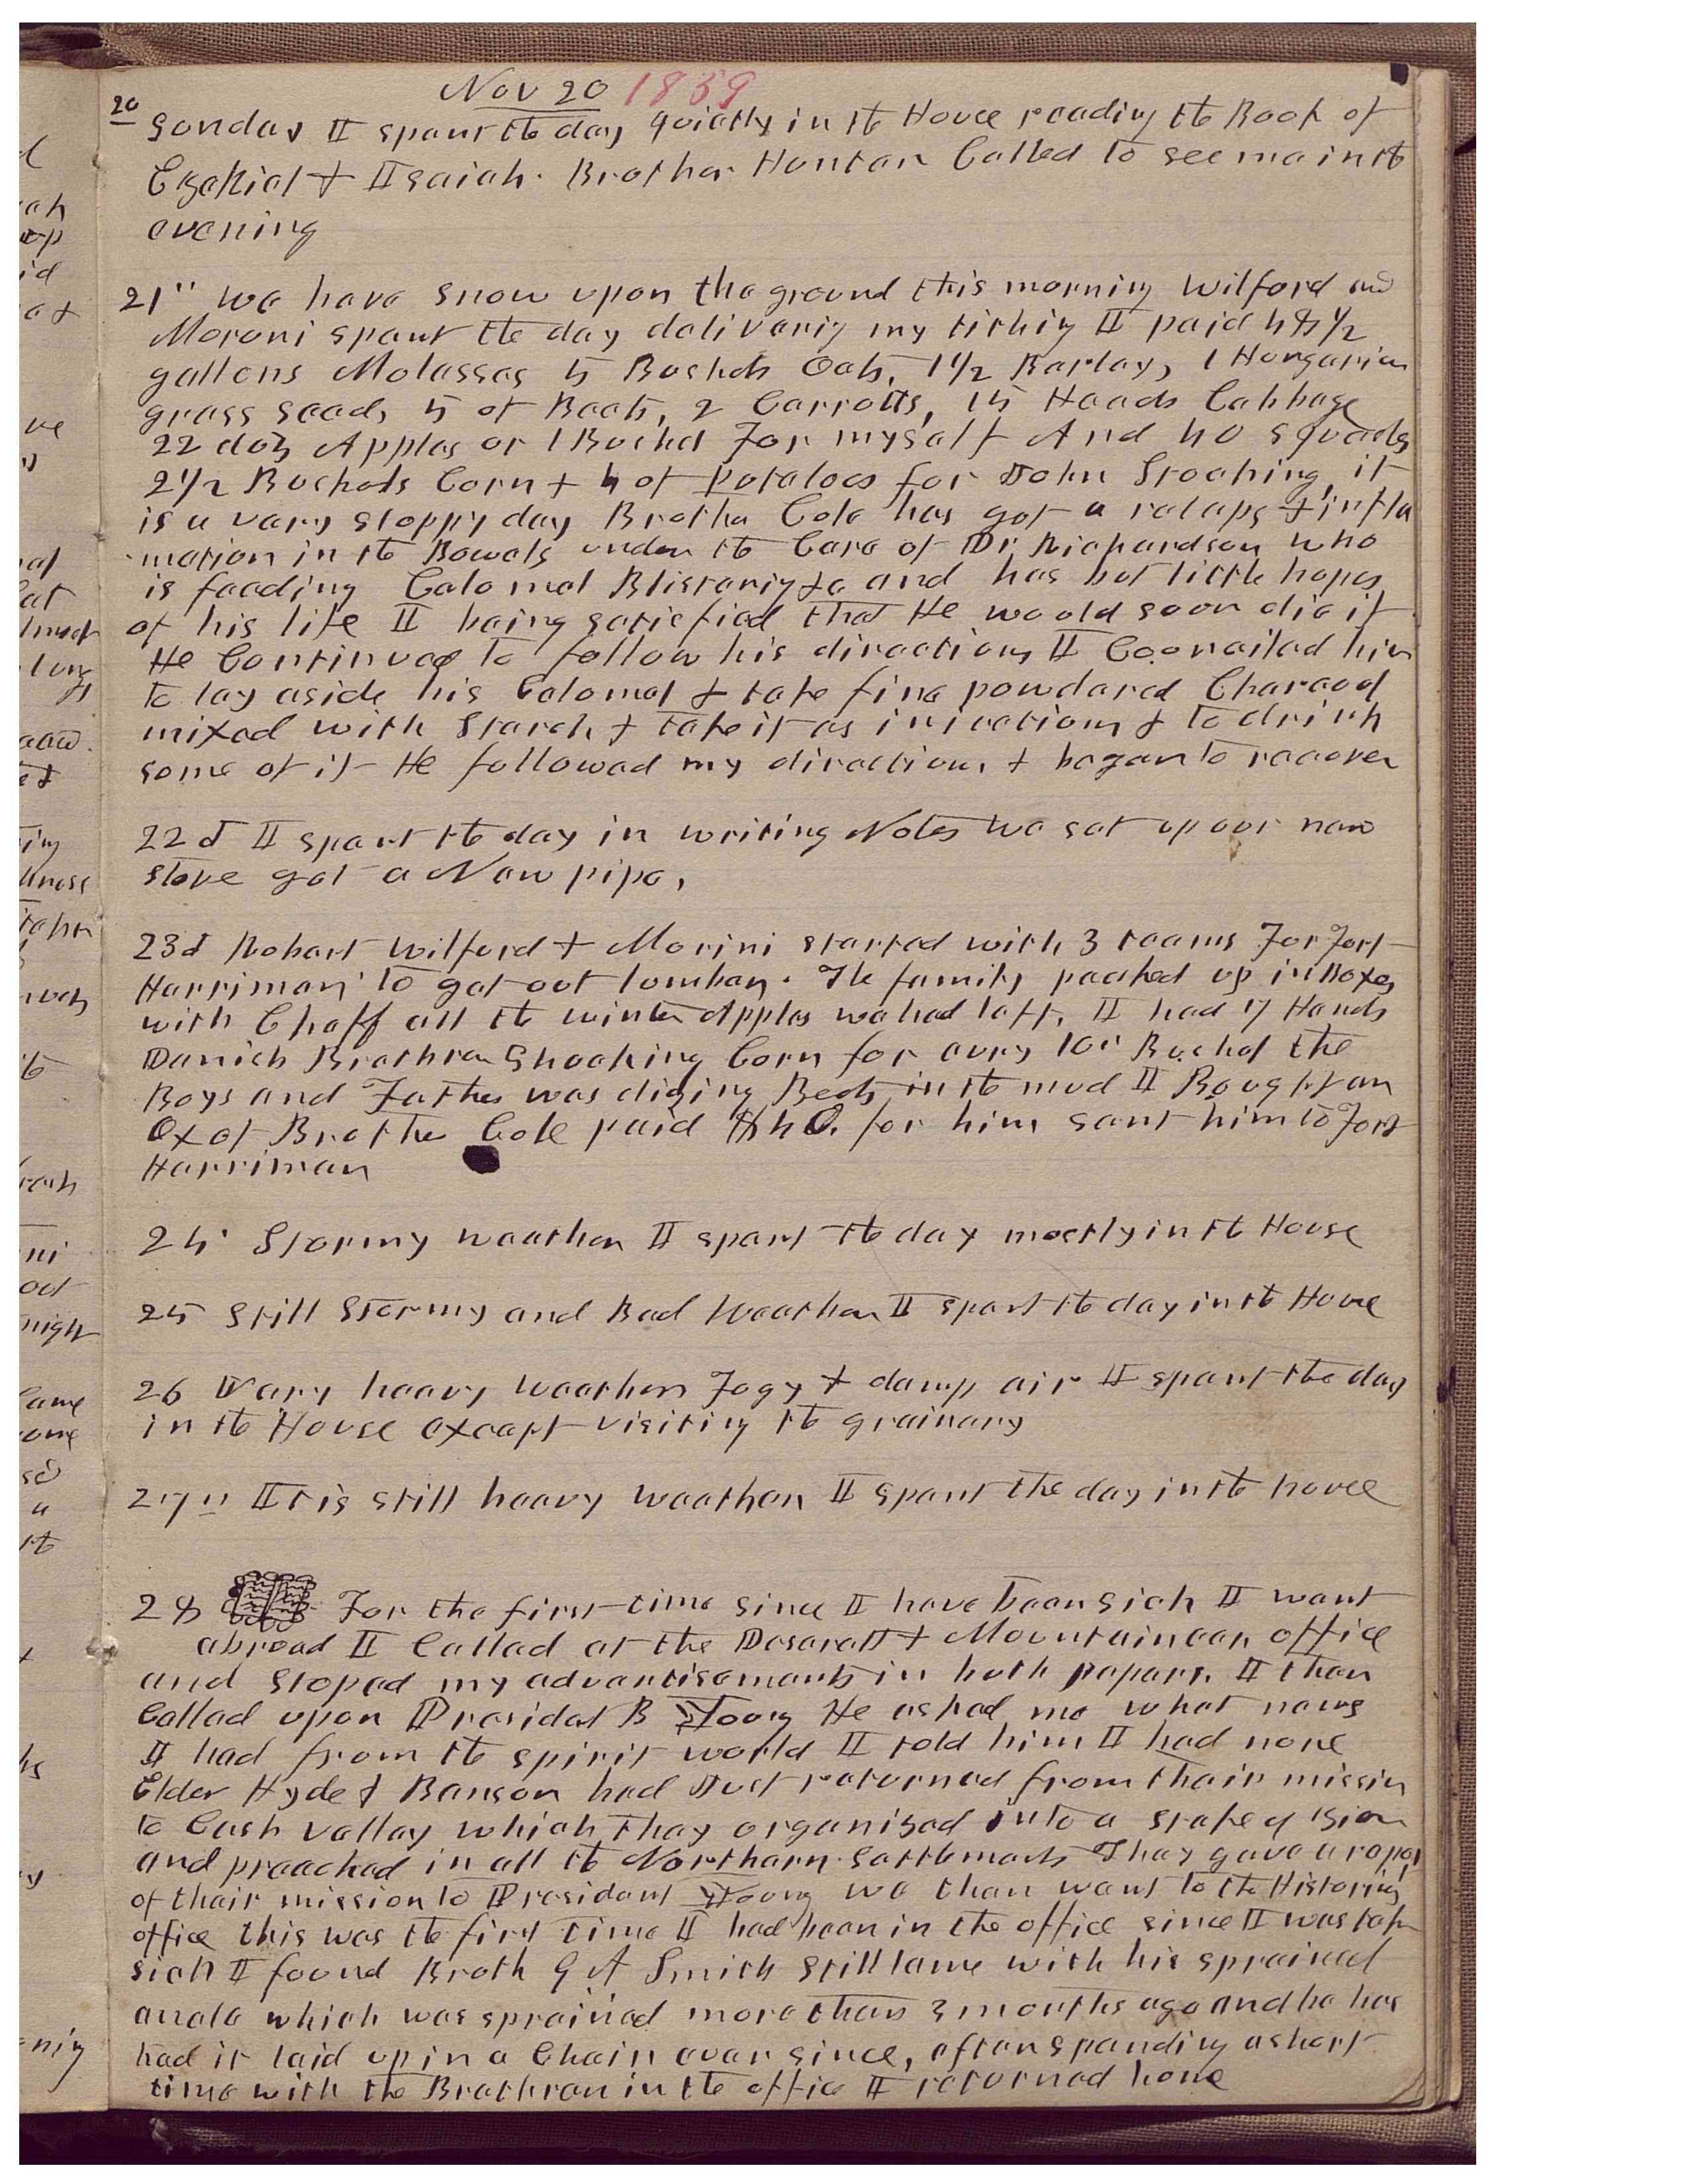 Nov 20 1859
20 Sunday I spent the day quietly in the House reading the Book of
Ezekiel & Isaiah. Brother Hunter Called to see me in the
evening
21" we have snow upon the ground this morning Wilford and
Moroni spent the day delivering my tithing I paid 48 1/2
gallons Molasses 5 Bushels Oats, 1 1/2 Barley, 1 Hungarian
grass seed, 5 of Beets, 2 Carrotts, 15 Heads Cabbage
22 doz Apples or 1 Bushel For myself And 40 squashs
2 1/2 Bushels Corn & 4 of Potatoes for John Stocking, it
is a very sloppy day Brother Cole has got a relaps & infla
mation in the Bowels under the Care of Dr Richardson who
is feeding Calomel Blistering &c and has but little hopes
of his life I being satisfied that He would soon die if
He Continued to follow his directions I Counciled him
to lay aside his Calomel & take fine powdered Charcoal
mixed with Starch & take it as injections & to drink
some of it He followed my directions & began to recover
22d I spent the day in writing Notes we set up our new
stove got a New pipe,
23d Robert Wilford & Morini started with 3 teams For Fort
Harriman to get out lumber. The family packed up in Boxes
with Chaff all the winter Apples we had left, I had 17 Hands
Danish Brethren Shocking Corn for every 10" Bushel the
Boys and Father was diging Beets in the mud I Bought an
Ox of Brother Cole paid $40. for him sent him to Fort
Harriman
24 Stormy weather I spent the day mostly in the House
25 Still Stormy and Bad Weather I spent the day in the House
26 Vary heavy weather Fogy & damp air I spent the day
in the House except visiting the grainary
27" It is still heavy weather I spent the day in the house
28 For the first time since I have been sick I went
abroad I Called at the Deserett & Mountaineer office
and stoped my advertisements in both papers. I then
Called upon President B Young He asked me what news
I had from the spirit world I told him I had none
Elder Hyde & Benson had Just returned from their mission
to Cash valley which they organized into a stake of Zion
and preached in all the Northern Settlements They gave a report
of their mission to President Young we then went to the Historians
office this was the first time I had been in the office since I was tak
sick I found Broth G A Smith still lame with his sprained
ancle which was sprained more than 3 months ago and he has
had it laid up in a Chair ever since, after spending a short
time with the Brethren in the office I returned home